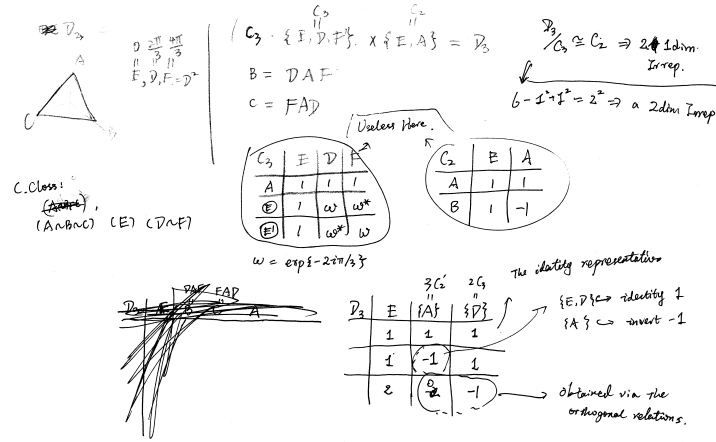 D₃
0 2π/3 4π/3
E, D, F = D²
A
C
C₃ C₂
C₃ · {E, D, F} × {E, A} = D₃
B = DAF
C = FAD
D₃/C₃ ≅ C₂ ⇒ 2 1dim. Irrep.
6 - 1² + 1² = 2² ⇒ a 2dim Irrep
Useless Here.
C₃ E D F
A 1 1 1
E 1 ω ω*
E' 1 ω* ω
ω = exp{-2iπ/3}
C₂ E A
A 1 1
B 1 -1
C. Class:
(A~B~C) (E) (D~F)
DAF FAD
3C₂' 2C₃
D₃ E {A} {D}
1 1 1
1 -1 1
2 0 -1
The identity representation
{E,D} ↪ identity 1
{A} ↪ invert -1
obtained via the
orthogonal relations.